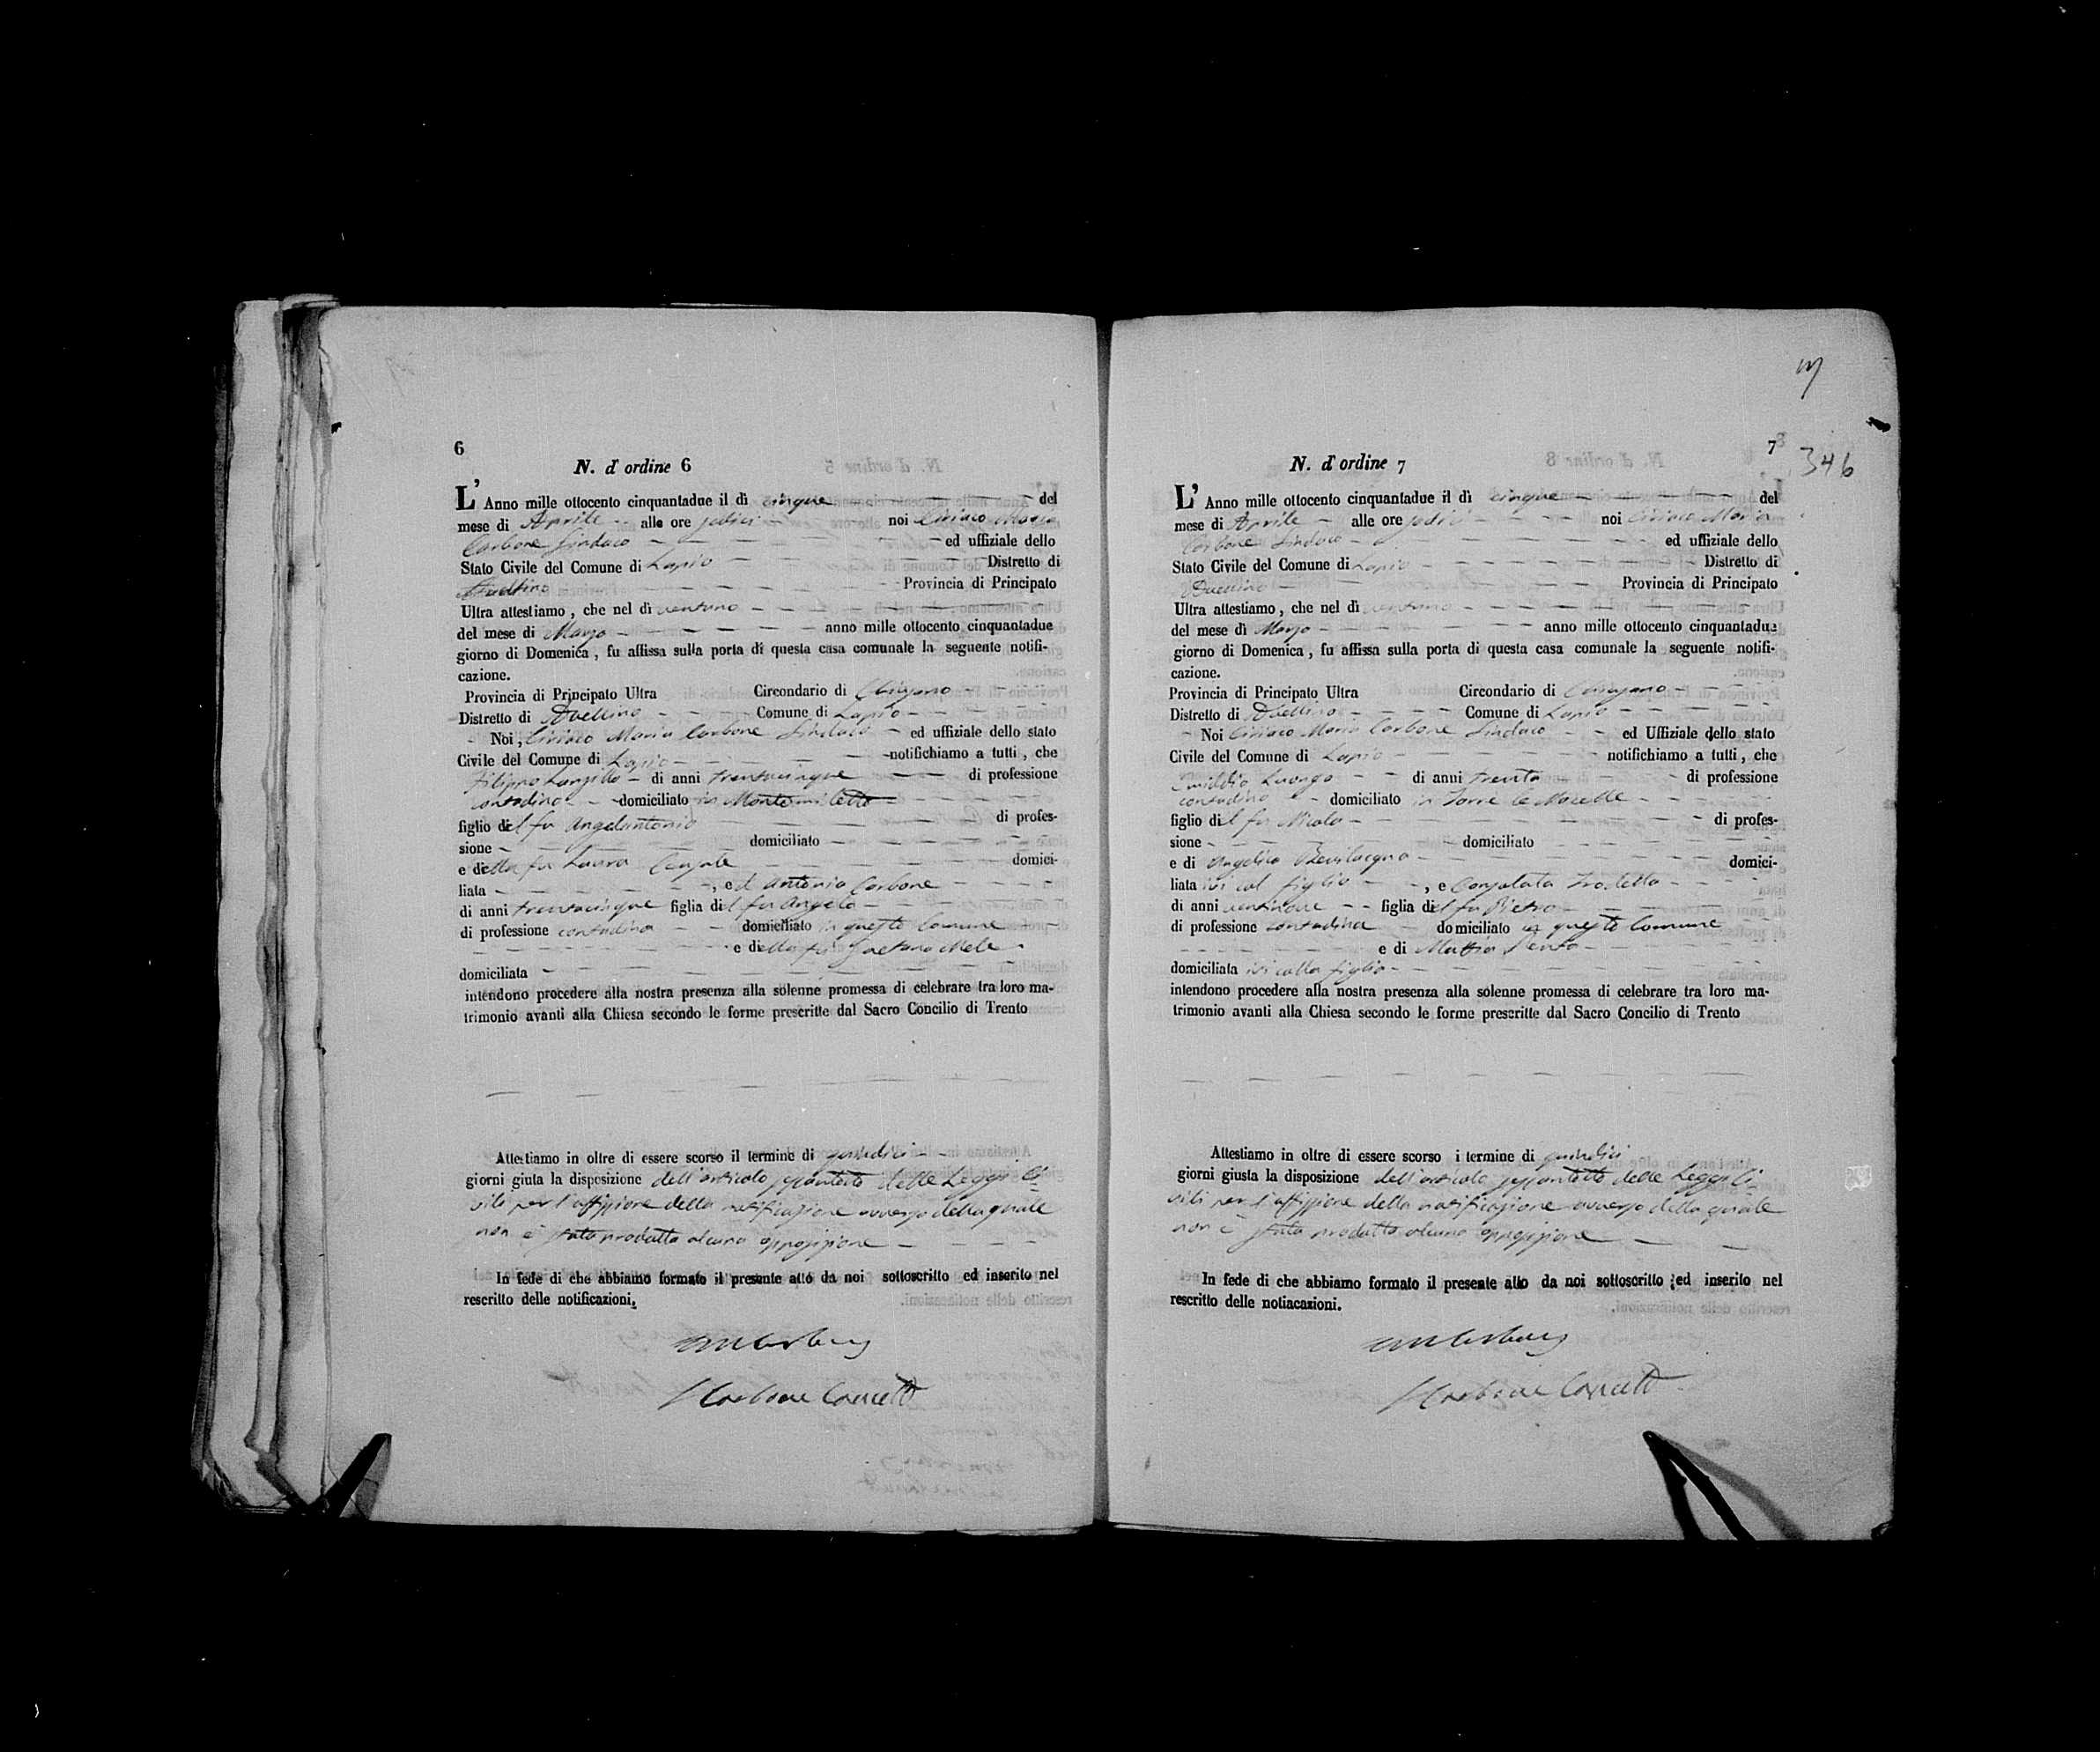 6
N. d' ordine 6
L' Anno mille ottocento cinquantadue il dì cinque del
mese di Aprile alle ore sedici noi Ciriaco Maria
Carbone Sindaco ed uffiziale dello
Stato Civile del Comune di Lapio Distretto di
Avellino Provincia di Principato
Ultra attestiamo, che nel dì ventuno
del mese di Marzo anno mille ottocento cinquantadue
giorno di Domenica, fu affissa sulla porta di questa casa comunale la seguente notifi-
cazione.
Provincia di Principato Ultra Circondario di Chiusano
Distretto di Avellino Comune di Lapio
Noi, Ciriaco Maria Carbone Sindaco ed uffiziale dello stato
Civile del Comune di Lapio notifichiamo a tutti, che
Filippo di anni trentacinque di professione
contadino domiciliato in Montemiletto
figlio del fu Angelantonio di profes-
sione domiciliato
e della fu Laura domici-
liata , ed Antonia Carbone
di anni trentacinque figlia del fu Angelo
di professione contadina domiciliato in questo Comune
e della fu Gaetana Mele
domiciliata
intendono procedere alla nostra presenza alla solenne promessa di celebrare tra loro ma-
trimonio avanti alla Chiesa secondo le forme prescritte dal Sacro Concilio di Trento
Attestiamo in oltre di essere scorso il termine di quindici
giorni giusta la disposizione dell'articolo sessantotto delle Leggi Ci-
vili per l'affissione della notificazione avverso della quale
non è stata prodotta alcuna opposizione
In fede di che abbiamo formato il presente atto da noi sottoscritto ed inserito nel
rescritto delle notificazioni.
Carbone
7
346
N. d' ordine 7
L' Anno mille ottocento cinquantadue il dì cinque del
mese di Aprile alle ore sedici noi Ciriaco Maria
Carbone Sindaco ed uffiziale dello
Stato Civile del Comune di Lapio Distretto di
Avellino Provincia di Principato
Ultra attestiamo, che nel dì ventuno
del mese di Marzo anno mille ottocento cinquantadue
giorno di Domenica, fu affissa sulla porta di questa casa comunale la seguente notifi-
cazione.
Provincia di Principato Ultra Circondario di Chiusano
Distretto di Avellino Comune di Lapio
Noi Ciriaco Maria Carbone Sindaco ed Uffiziale dello stato
Civile del Comune di Lapio notifichiamo a tutti, che
Emiddio Luongo di anni trenta di professione
contadino domiciliato in Torre le Nocelle
figlio del fu Nicola di profes-
sione domiciliato
e di Angelica Bevilacqua domici-
liata ivi col figlio , e Consolata
di anni ventinove figlia del fu Pietro
di professione contadina domiciliato in questo Comune
e di Mattia
domiciliata ivi colla figlia
intendono procedere alla nostra presenza alla solenne promessa di celebrare tra loro ma-
trimonio avanti alla Chiesa secondo le forme prescritte dal Sacro Concilio di Trento
Attestiamo in oltre di essere scorso i termine di quindici
giorni giusta la disposizione dell'articolo sessantotto delle Leggi Ci-
vili per l'affissione della notificazione avverso della quale
non è stata prodotta alcuna opposizione
In fede di che abbiamo formato il presente atto da noi sottoscritto ed inserito nel
rescritto delle notiacazioni.
Carbone